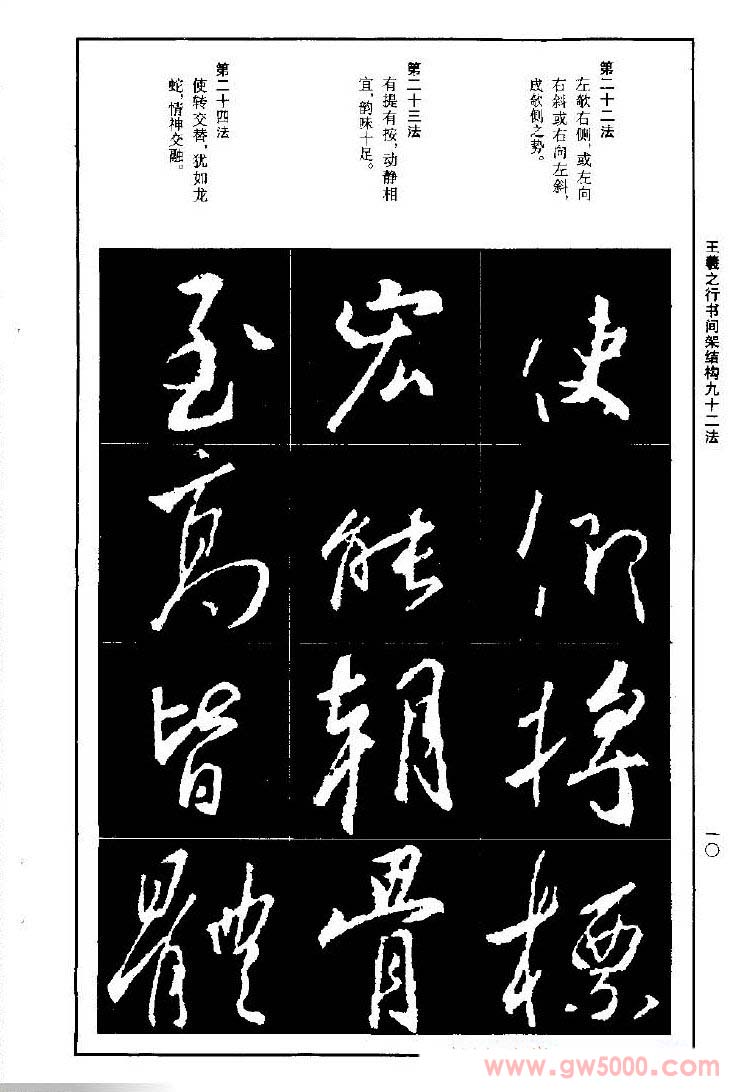 王羲之行书间架结构九十二法
一〇
第二十二法
左欹右侧，或左向
右斜或右向左斜，
成欹侧之势。
第二十三法
有提有按，动静相
宜，韵味十足。
第二十四法
使转交替，犹如龙
蛇，情神交融。
使仰将標
宏能朝骨
至高皆體
www.gw5000.com